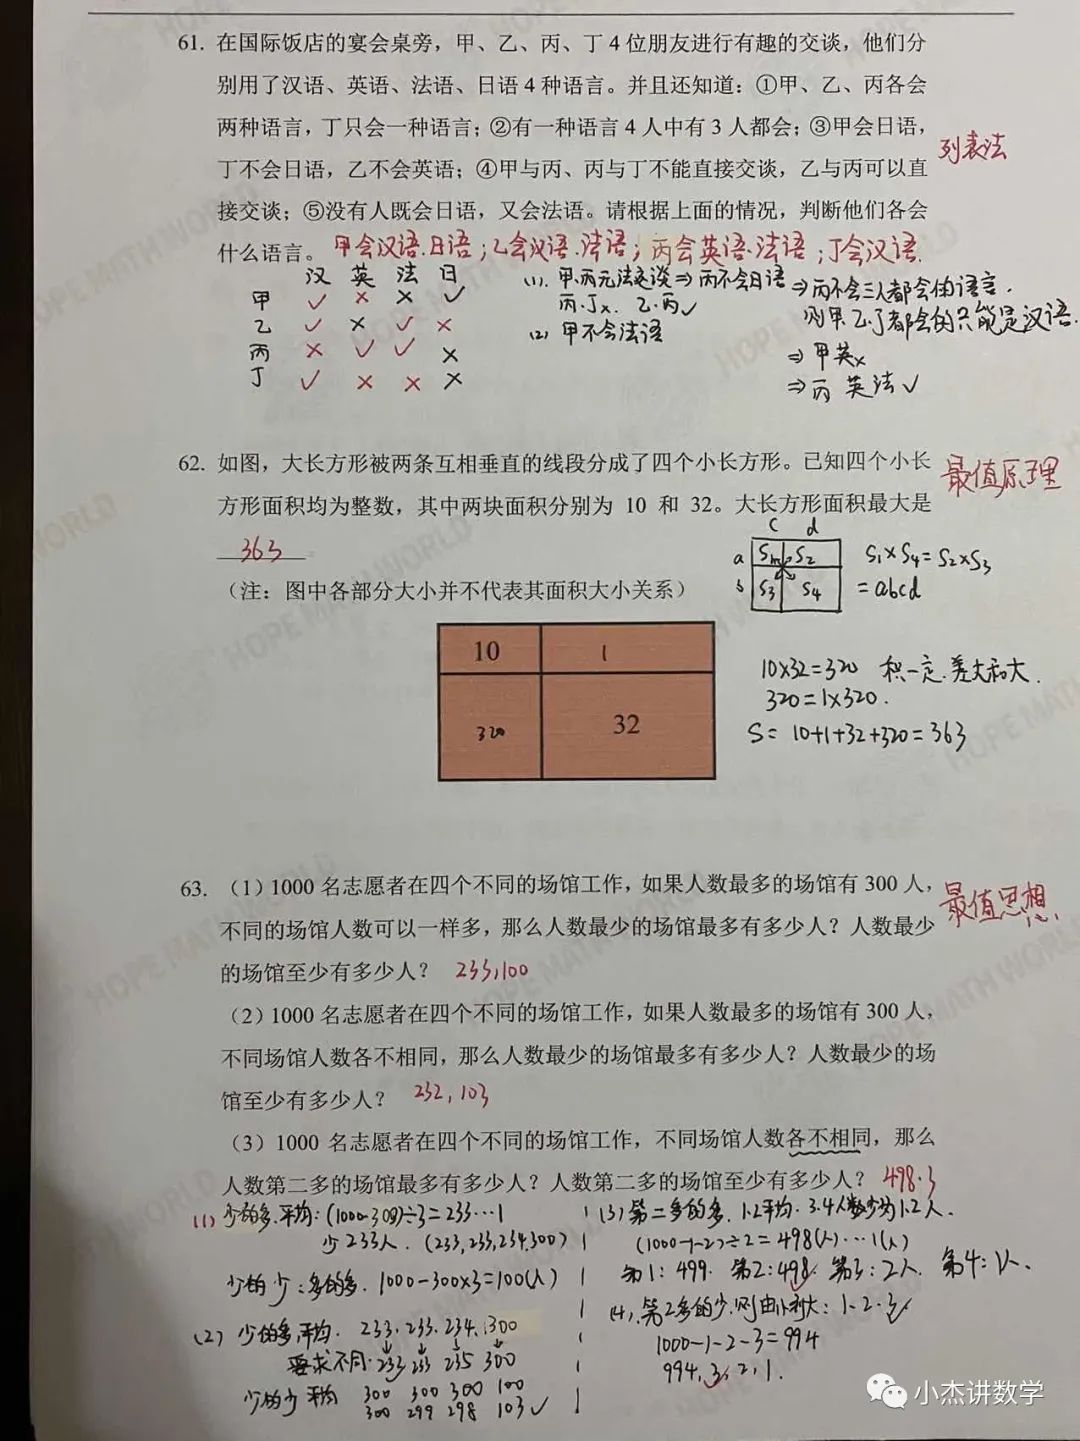 61. 在国际饭店的宴会桌旁，甲、乙、丙、丁 4 位朋友进行有趣的交谈，他们分
别用了汉语、英语、法语、日语 4 种语言。并且还知道：①甲、乙、丙各会
两种语言，丁只会一种语言；②有一种语言 4 人中有 3 人都会；③甲会日语，
丁不会日语，乙不会英语；④甲与丙、丙与丁不能直接交谈，乙与丙可以直
接交谈；⑤没有人既会日语，又会法语。请根据上面的情况，判断他们各会
什么语言。 甲会汉语.日语；乙会汉语.法语；丙会英语.法语；丁会汉语.
列表法
汉 英 法 日
甲 ✓ × × ✓
乙 ✓ × ✓ ×
丙 × ✓ ✓ ×
丁 ✓ × × ×
(1). 甲.丙无法交谈⇒丙不会日语
丙.丁×. 乙.丙✓
(2) 甲不会法语
⇒丙不会三人都会的语言.
则甲.乙.丁都会的只能是汉语.
⇒甲英×
⇒丙 英法✓
62. 如图，大长方形被两条互相垂直的线段分成了四个小长方形。已知四个小长
方形面积均为整数，其中两块面积分别为 10 和 32。大长方形面积最大是
363
最值原理
（注：图中各部分大小并不代表其面积大小关系）
c d
a S₁ S₂
b S₃ S₄
S₁×S₄=S₂×S₃
=abcd
10 1
320 32
10×32=320 积一定.差大和大.
320=1×320.
S= 10+1+32+320=363
63. （1）1000 名志愿者在四个不同的场馆工作，如果人数最多的场馆有 300 人，
不同的场馆人数可以一样多，那么人数最少的场馆最多有多少人？人数最少
的场馆至少有多少人？ 233,100
最值思想.
（2）1000 名志愿者在四个不同的场馆工作，如果人数最多的场馆有 300 人，
不同场馆人数各不相同，那么人数最少的场馆最多有多少人？人数最少的场
馆至少有多少人？ 232, 103
（3）1000 名志愿者在四个不同的场馆工作，不同场馆人数各不相同，那么
人数第二多的场馆最多有多少人？人数第二多的场馆至少有多少人？ 498.3
(1) 少的多.平均：(1000-300)÷3=233…1
少233人. (233,233,234,300)
少的少：多的多. 1000-300×3=100(人)
(2) 少的多,平均. 233. 233. 234. 300
要求不同. 233 235 300
少的少 平均 300 300 300 100
300 299 298 103✓
(3) 第二多的多. 1.2平均. 3.4人数少为1.2人.
(1000-1-2)÷2=498(人)…1(人)
第1: 499. 第2: 498. 第3: 2人. 第4: 1人.
(4). 第2多的少.则由小到大: 1.2.3
1000-1-2-3=994
994, 3, 2, 1.
小杰讲数学
HOPE MATH WORLD